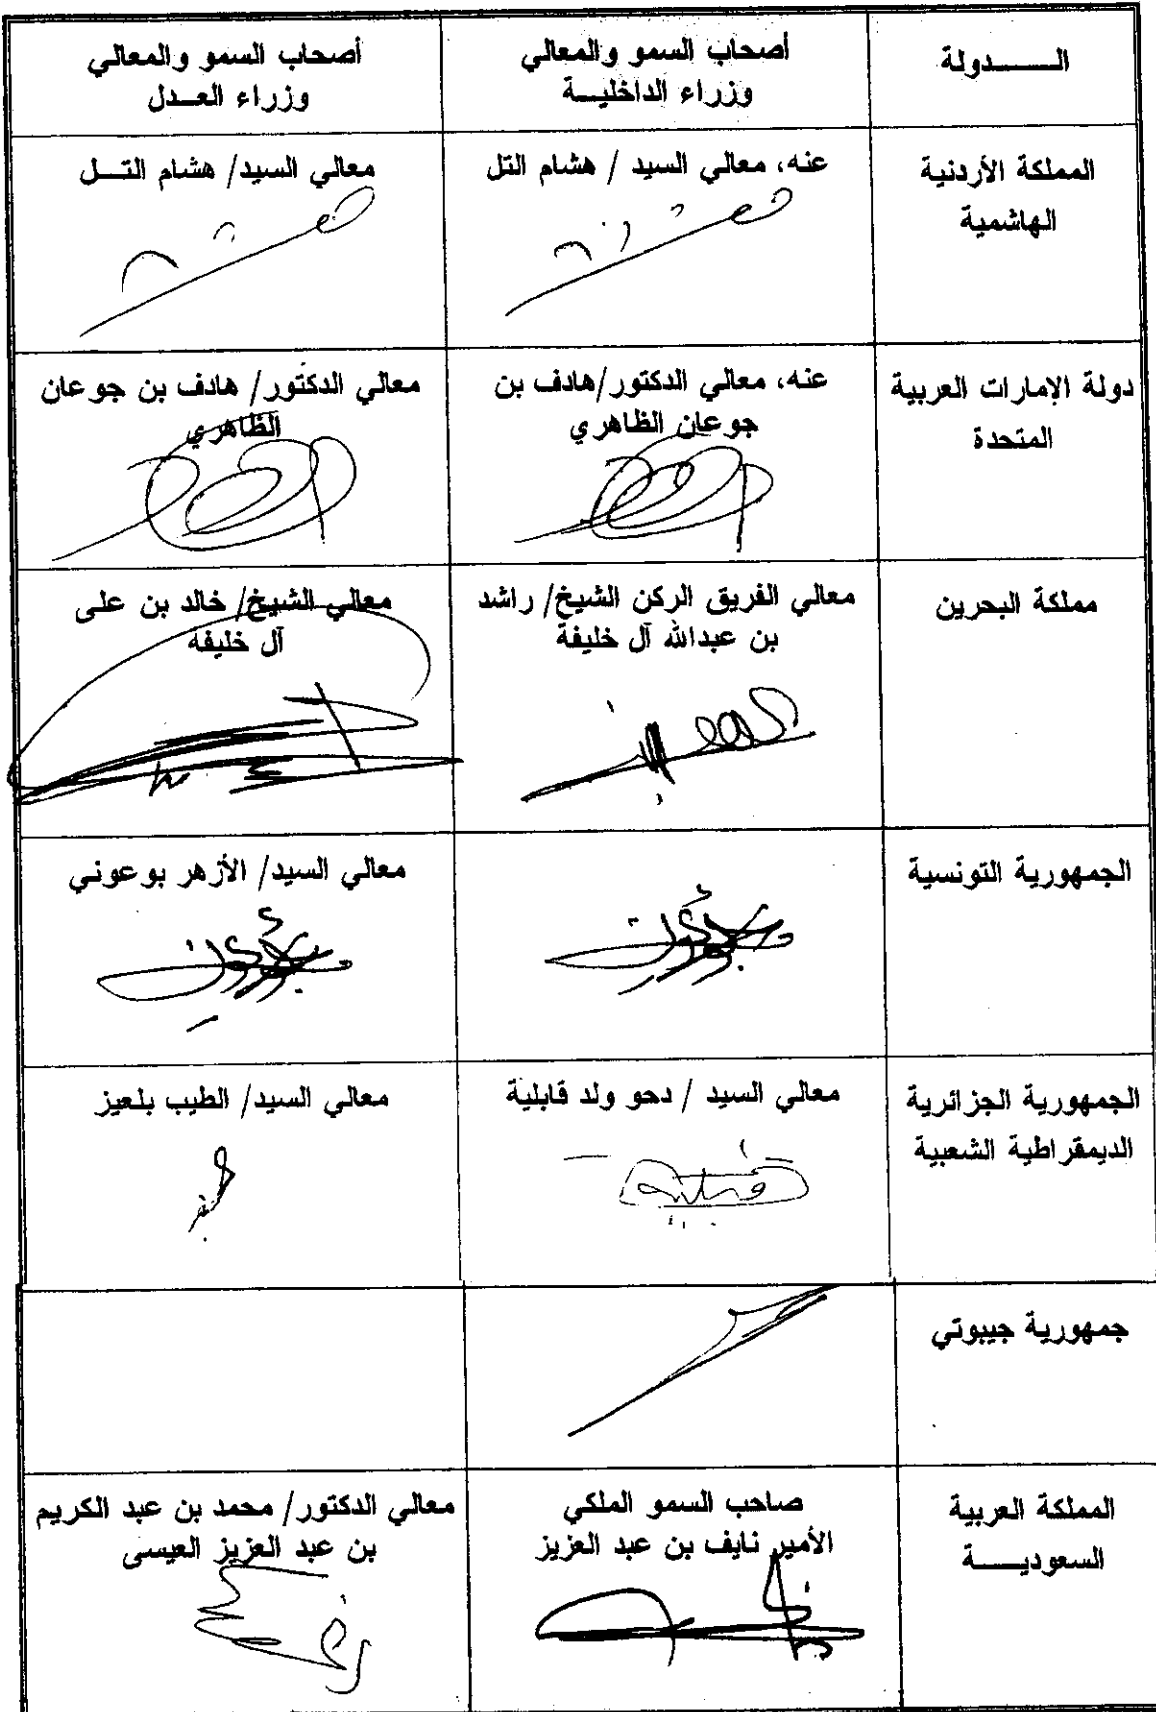 الـــــدولة
أصحاب السمو والمعالي
وزراء الداخليـــة
أصحاب السمو والمعالي
وزراء العــدل
المملكة الأردنية
الهاشمية
عنه، معالي السيد / هشام التل
معالي السيد/ هشام التــل
دولة الإمارات العربية
المتحدة
عنه، معالي الدكتور/هادف بن
جوعان الظاهري
معالي الدكتور/ هادف بن جوعان
الظاهري
مملكة البحرين
معالي الفريق الركن الشيخ/ راشد
بن عبدالله آل خليفة
معالي الشيخ/ خالد بن على
آل خليفة
الجمهورية التونسية
معالي السيد/ الأزهر بوعوني
الجمهورية الجزائرية
الديمقراطية الشعبية
معالي السيد / دحو ولد قابلية
معالي السيد/ الطيب بلعيز
جمهورية جيبوتي
المملكة العربية
السعوديـــــة
صاحب السمو الملكي
الأمير نايف بن عبد العزيز
معالي الدكتور/ محمد بن عبد الكريم
بن عبد العزيز العيسى